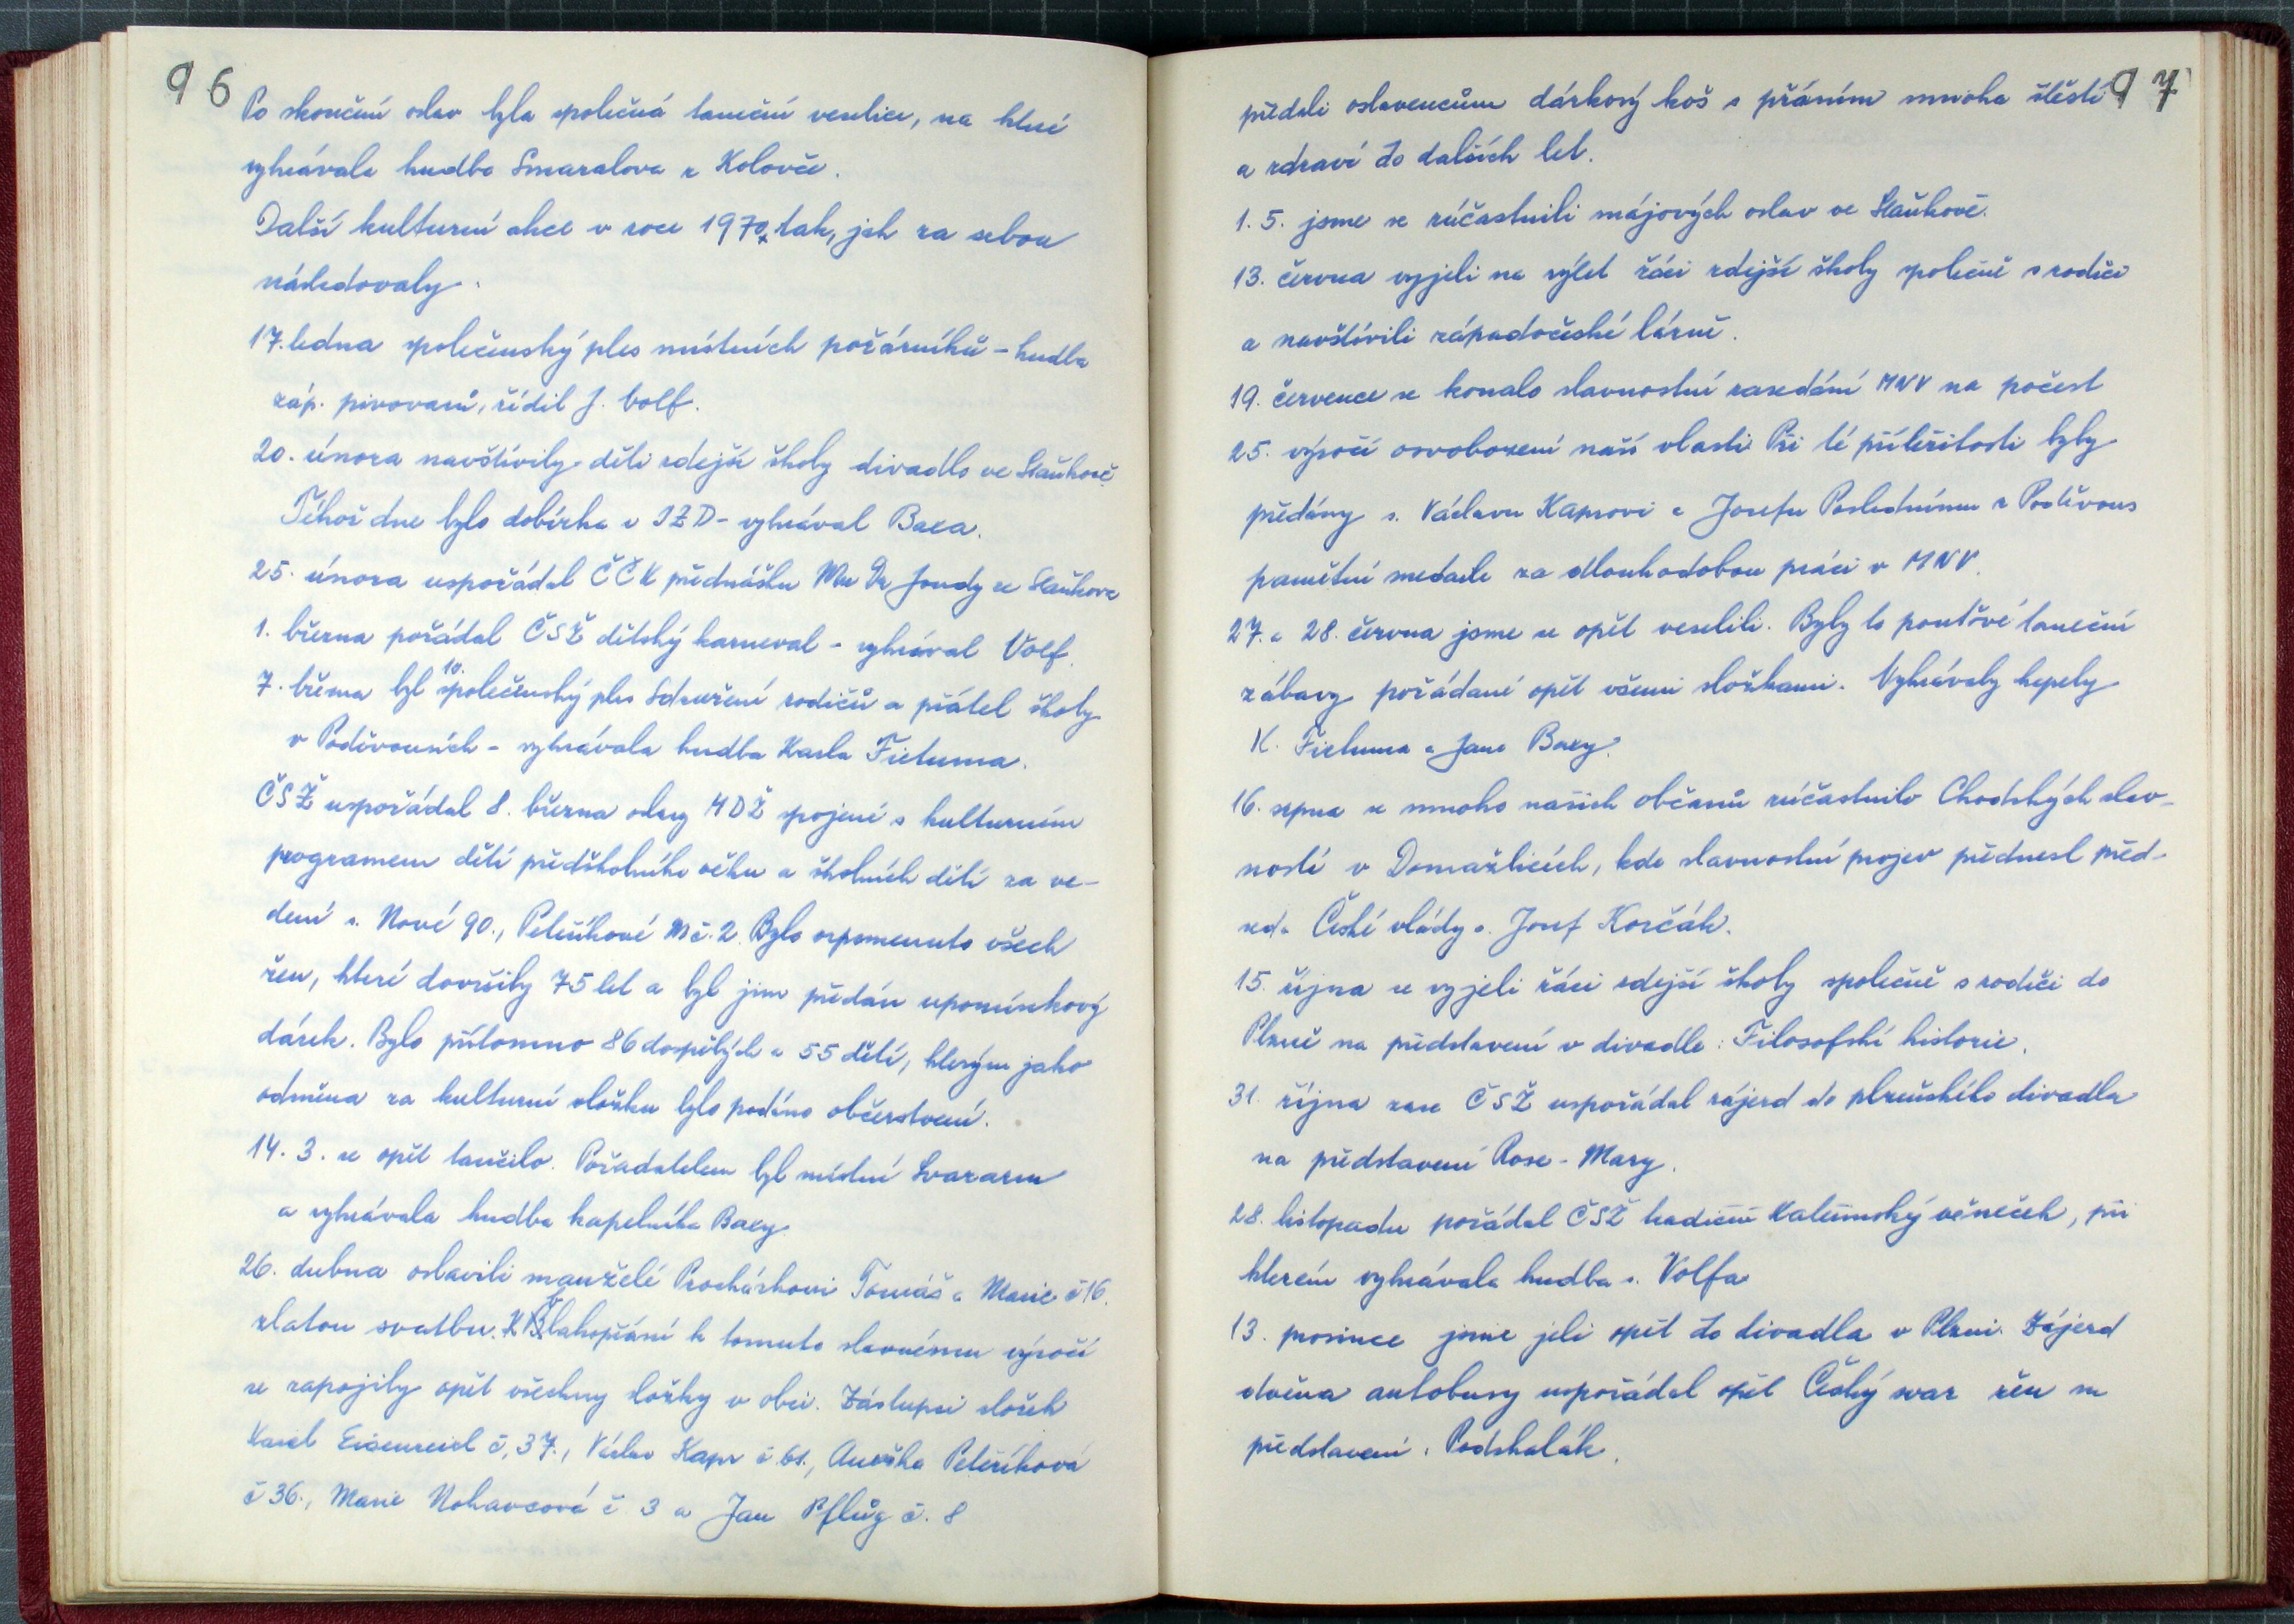 96
Po skončení oslav byla společná taneční veselice, na které
vyhrávala hudba Smaralova z Kolovče.
Další kulturní akce v roce 1970, tak, jak za sebou
následovaly.
17. ledna společenský ples místních požárníků - hudba
záp. pivovarů, řídil J. Volf.
20. února navštívily děti zdejší školy divadlo ve Staňkově.
Téhož dne bylo dobírka v JZD - vyhrával Baxa.
25. února uspořádal ČČK přednášku MuDr Joudy ze Staňkova
1. března pořádal ČSŽ dětský karneval - vyhrával Volf.
7. března byl 10. společenský ples Sdružení rodičů a přátel školy
v Poděvousích - vyhrávala hudba Karla Fictuma.
ČSŽ uspořádal 8. března oslavy MDŽ spojené s kulturním
programem dětí předškolního věku a školních dětí za ve-
dení s. Nové 90., Peteříkové M č. 2. Bylo vzpomenuto všech
žen, které dovršily 75 let a byl jim předán upomínkový
dárek. Bylo přítomno 86 dospělých a 55 dětí, kterým jako
odměna za kulturní složku bylo podáno občerstvení.
14. 3. se opět tančilo. Pořadatelem byl místní Svazarm
a vyhrávala hudba kapelníka Baxy.
26. dubna oslavili manželé Procházkovi Tomáš a Marie č 16.
zlatou svatbu. K blahopřání k tomuto slavnému výročí
se zapojily opět všechny složky v obci. Zástupci složek
Karel Eisenreich č. 37., Václav Kapr č. 61., Anežka Peteříková
č 36., Marie Nohavcová č 3 a Jan Pflůg č. 8
97
předali oslavencům dárkový koš s přáním mnoha štěstí
a zdraví do dalších let.
1. 5. jsme se zúčastnili májových oslav ve Staňkově.
13. června vyjeli na výlet žáci zdejší školy společně s rodiči
a navštívili západočeské lázně.
19. července se konalo slavnostní zasedání MNV na počest
25. výročí osvobození naší vlasti. Při té příležitosti byly
předány s. Václavu Kaprovi a Josefu Poslednímu z Poděvous
pamětní medaile za dlouhodobou práci v MNV.
27. a 28. června jsme se opět veselili. Byly to pouťové taneční
zábavy pořádané opět všemi složkami. Vyhrávaly kapely
K. Fictuma a Jana Baxy.
16. srpna se mnoho našich občanů zúčastnilo Chodských slav-
ností v Domažlicích, kde slavnostní projev přednesl před-
seda České vlády s. Josef Korčák.
15. října se vyjeli žáci zdejší školy společně s rodiči do
Plzně na představení v divadle: Filosofská historie.
31. října zase ČSŽ uspořádal zájezd do plzeňského divadla
na představení Rose-Mary.
28. listopadu pořádal ČSŽ tradiční Kateřinský věneček, při
kterém vyhrávala hudba s. Volfa
13. prosince jsme jeli opět do divadla v Plzni. Zájezd
dvěma autobusy uspořádal opět Český svaz žen na
představení: Podskalák.